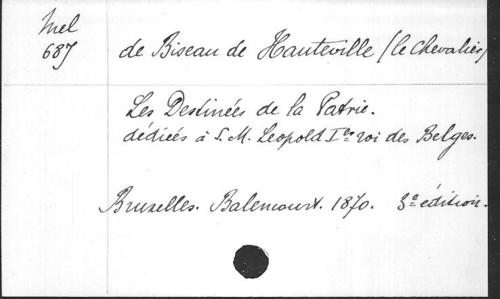 Mel
687
de Biseau de Hauteville (le Chevalier)
Les Destinées de la Patrie.
dédiées à S. M. Leopold Ier roi des Belges.
Bruxelles. Balencourt. 1870. 3e édition.